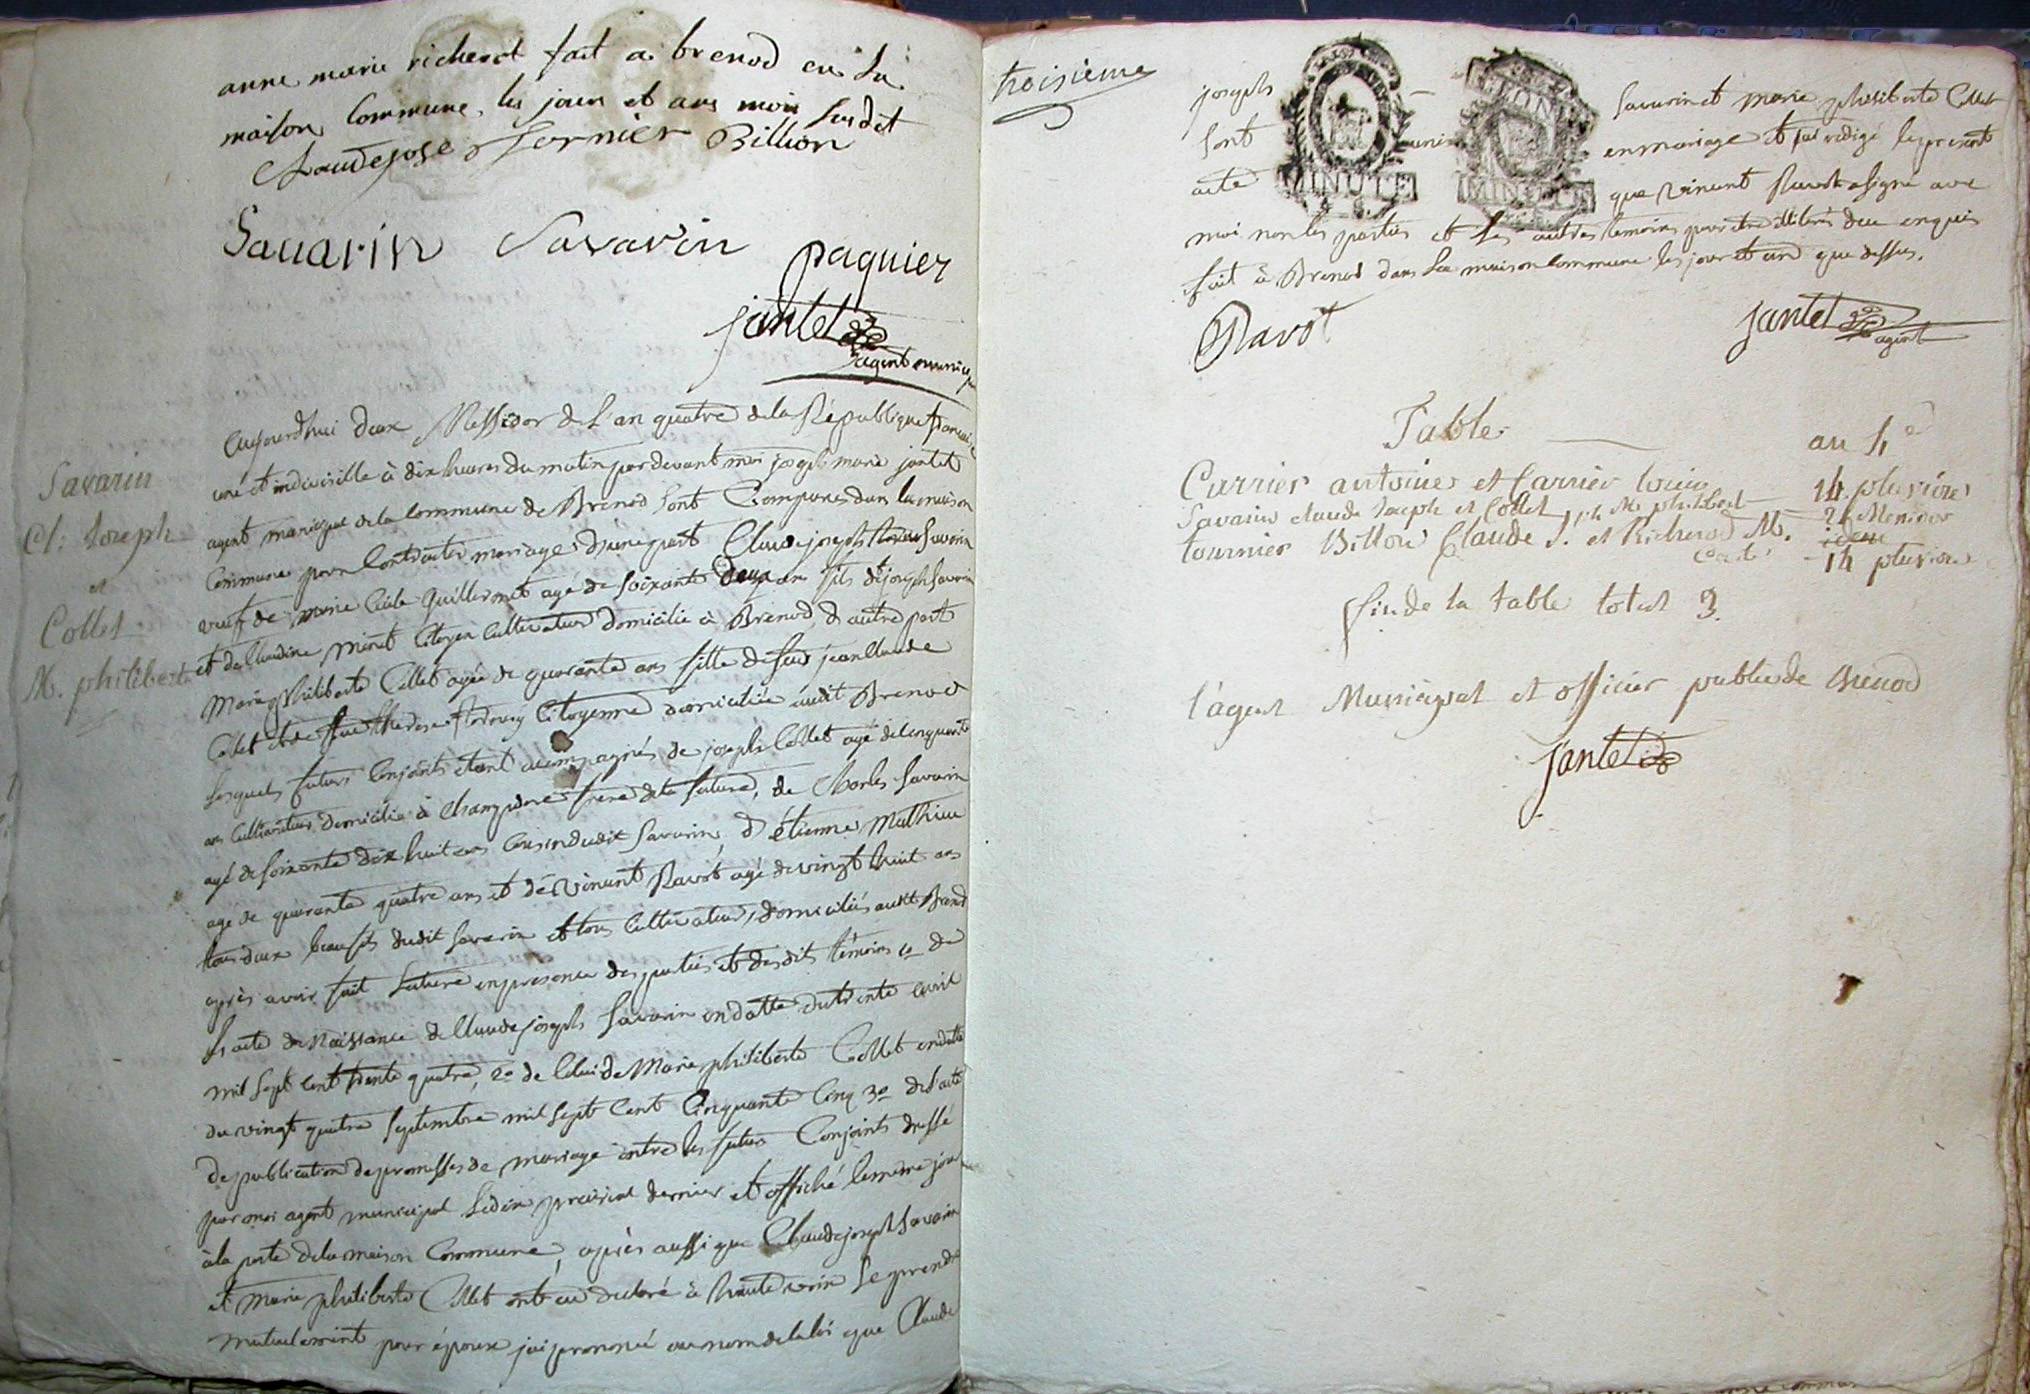 anne marie richerot fait a brenod en la
maison Commune, les jour et ans mois Susdit
Claudejose Tornier Billion
Sauarin Savarin paquier
jantet
agent munici
Savarin
Cl: Joseph
et
Collet
M. philiberte
aujourdhui deux Messidor de l'an quatre de la République francai
une et indivisible à dix heures du matin pardevant moi joseph marie jantet
agent municipal de la Commune de Brenod sont Comparus dans la maison
Commune pour Contracter mariage d'une part Claude joseph Savarin
veuf de marie Cécile Guillermet agé de soixante deux ans fils de joseph Savarin
et de Claudine Minet Citoyen Cultivateur domicilié à Brenod, d'autre part
Marie philiberte Collet agée de quarante ans fille de feu jean Claude
Collet et de feue Therese Citoyenne domiciliée audit Brenod
lesquels futurs Conjoints etant accompagnés de joseph Collet agé de Cinquante
ans Cultivateur domicilié à Champdore frere de la future, de Charles Savarin
agé de soixante dix huit ans Cousin dudit Savarin, d'étienne Mathieu
agé de quarante quatre ans et de Vincent Ravot agé de vingt huit ans
tous deux beaufils dudit Savarin et tous Cultivateurs, domiciliés audit Brenod
après avoir fait Lecture en presence des parties et desdits témoins 1º de
l'acte de Naissance de Claude joseph Savarin en datte du trente avril
mil sept cent trente quatre, 2º de Celui de Marie philiberte Collet en datte
du vingt quatre septembre mil sept Cent Cinquante Cinq 3º de l'acte
de publication de promesses de mariage entre les futurs Conjoints dressé
par moi agent municipal le dix prairial dernier et affiché le meme jour
à la porte de la maison Commune, après aussi que Claude joseph Savarin
et Marie philiberte Collet ont eu declaré à haute voix se prendre
mutuelement pour époux j'ai prononcé au nom de la loi que Claude
troisieme
joseph Savarin et marie philiberte Collet
sont unis en mariage et j'ai redigé le present
acte que Vincent Ravot a signé avec
MINUTE MINUTE
moi non les parties et les autres temoins pour etre illiterés de ce enquis
fait à Brenod dans la maison Commune les jour et an que dessus.
Ravot
jantet
agent
Table
an 4e
Carrier antoine et Carrier 14 pluviose
Savarin claude Joseph et Collet M. philibert 2 Messidor
tournier Billion Claude J. et Richerod M.
14 pluviose
fin de la table total 3.
l'agent Municipal et officier public de Brenod
jantet